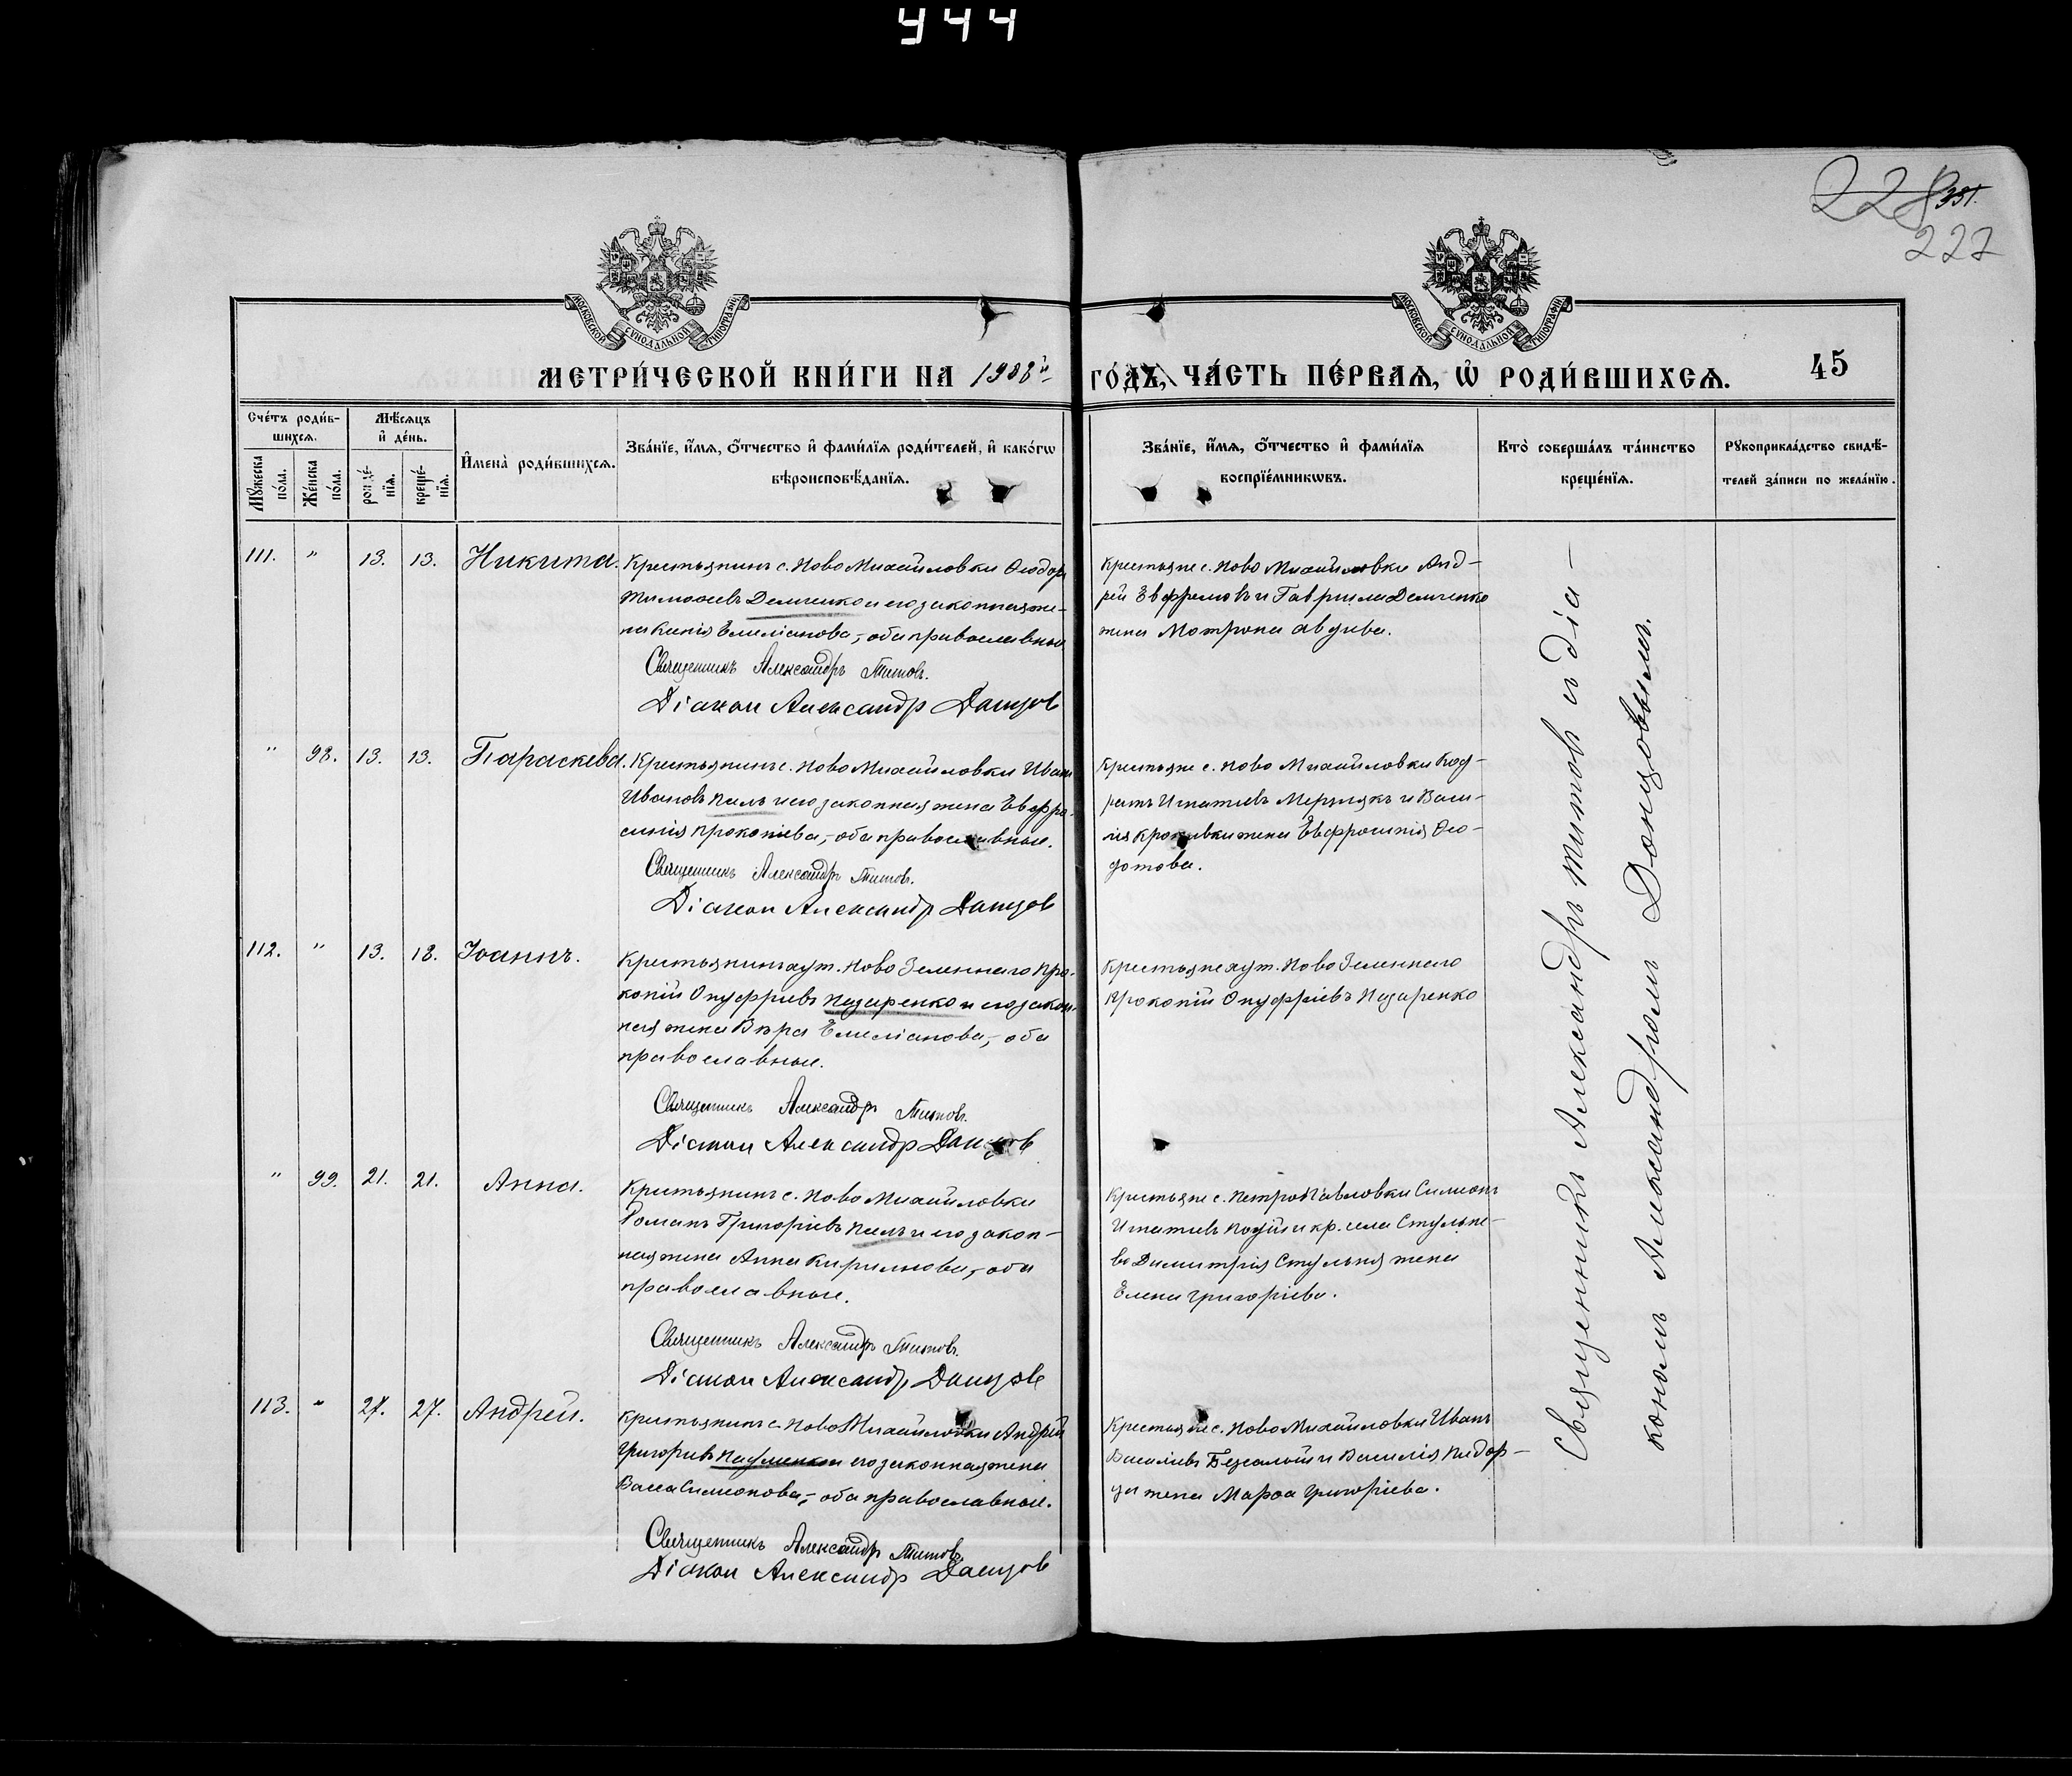 944
228 351.
227
МОСКОВСКОЙ СУНОДАЛЬНОЙ ТИПОГРАФІИ
МОСКОВСКОЙ СУНОДАЛЬНОЙ ТИПОГРАФІИ
МЕТРИ́ЧЕСКОЙ КНИ́ГИ НА 1908й ГО́ДЪ, ЧА́СТЬ ПЕ́РВАЯ, Ѡ РОДИ́ВШИХСѦ. 45
Сче́тъ роди́в-
шихсѧ.
Мꙋ́жеска по́ла.
Же́нска по́ла.
Мѣ́сѧцъ и҆ де́нь.
рожде́-
нїѧ.
креще́-
нїѧ.
И҆мена̀ роди́вшихсѧ.
Зва́нїе, и҆́мѧ, ѻ҆́тчество и҆ фами́лїѧ роди́телей, и҆ како́гѡ
вѣроисповѣ́данїѧ.
Зва́нїе, и҆́мѧ, ѻ҆́тчество и҆ фами́лїѧ
воспрїе́мникѡвъ.
Кто̀ соверша́лъ та́инство
креще́нїѧ.
Рꙋкоприкла́дство свидѣ́-
телей за́писи по жела́нїю.
111. " 13. 13. Никита. Крестьянинъ с. Ново Михайловки Ѳеодоръ
Тимоѳеевъ Демченко и его законная же-
на Ксенія Емеліанова,- оба православные
Священникъ Александръ Титовъ.
Діакон Александр Донцов
Крестьяне с. Ново Михайловки Анд-
рей Евфремовъ и Гавриила Демченко
жена Мотрона Авдиева.
" 98. 13. 13. Параскева. Крестьянинъ с. Ново Михайловки Иванъ
Ивановъ и его законная жена Евфро-
синія Прокопіева,- оба православные.
Священникъ Александръ Титовъ.
Діакон Александр Донцов
Крестьяне с. Ново Михайловки Код-
ратъ Игнатіевъ и Васи-
лія жена Евфросинія Ѳео-
дотова.
112. " 13. 18. Іоаннъ. Крестьянинъ хут. Ново Зеленнаго Про-
копій Онуфріевъ Назаренко и его закон-
ная жена Вѣра Емеліанова,- оба
православные.
Священникъ Александръ Титовъ.
Діакон Александр Донцов
Крестьяне хут. Ново Зеленнаго
Прокопій Онуфріевъ Назаренко
" 99. 21. 21. Анна. Крестьянинъ с. Ново Михайловки
Романъ Григоріевъ и его закон-
ная жена Анна Кириллова,- оба
православные.
Священникъ Александръ Титовъ.
Діакон Александр Донцов
Крестьяне с. Петропавловки Симеонъ
Игнатіевъ и кр. села Стульне-
во Димитрія Стульня жена
Елена Григоріева.
113. " 27. 27. Андрей. Крестьянинъ с. Ново Михайловки Андрей
Григоріевъ и его законная жена
Васса Симеонова,- оба православные.
Священникъ Александръ Титовъ.
Діакон Александр Донцов
Крестьяне с. Ново Михайловки Иванъ
Василіевъ и Василія
жена Марѳа Григоріева.
Священникъ Александръ Титовъ и діа-
кономъ Александромъ Донцовымъ.